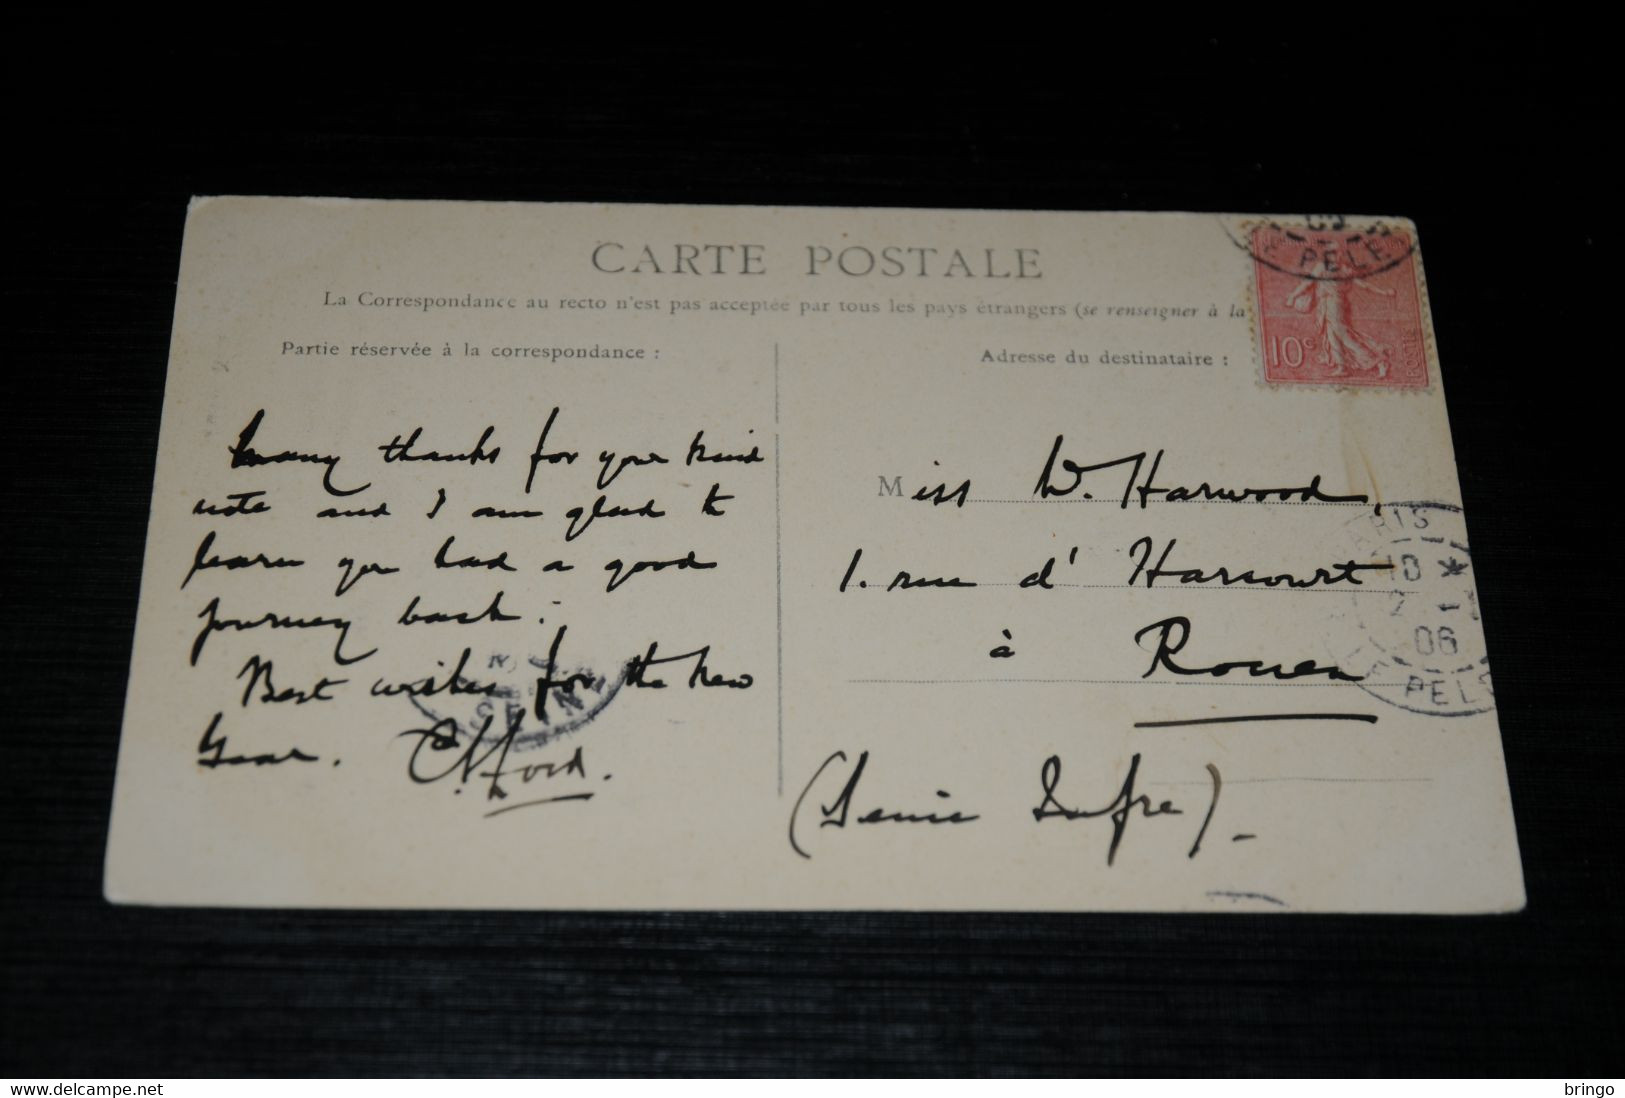 CARTE POSTALE
La Correspondance au recto n'est pas acceptée par tous les pays étrangers (se renseigner à la
Partie réservée à la correspondance :
Many thanks for your kind
note and I am glad to
learn you had a good
journey back.
Best wishes for the New
Year.
Ford.
Adresse du destinataire :
Miss W. Harwood,
1. rue d'Harcourt
à Rouen
(Seine Infre)
10c
POSTES
PELE
PARIS
06
bringo